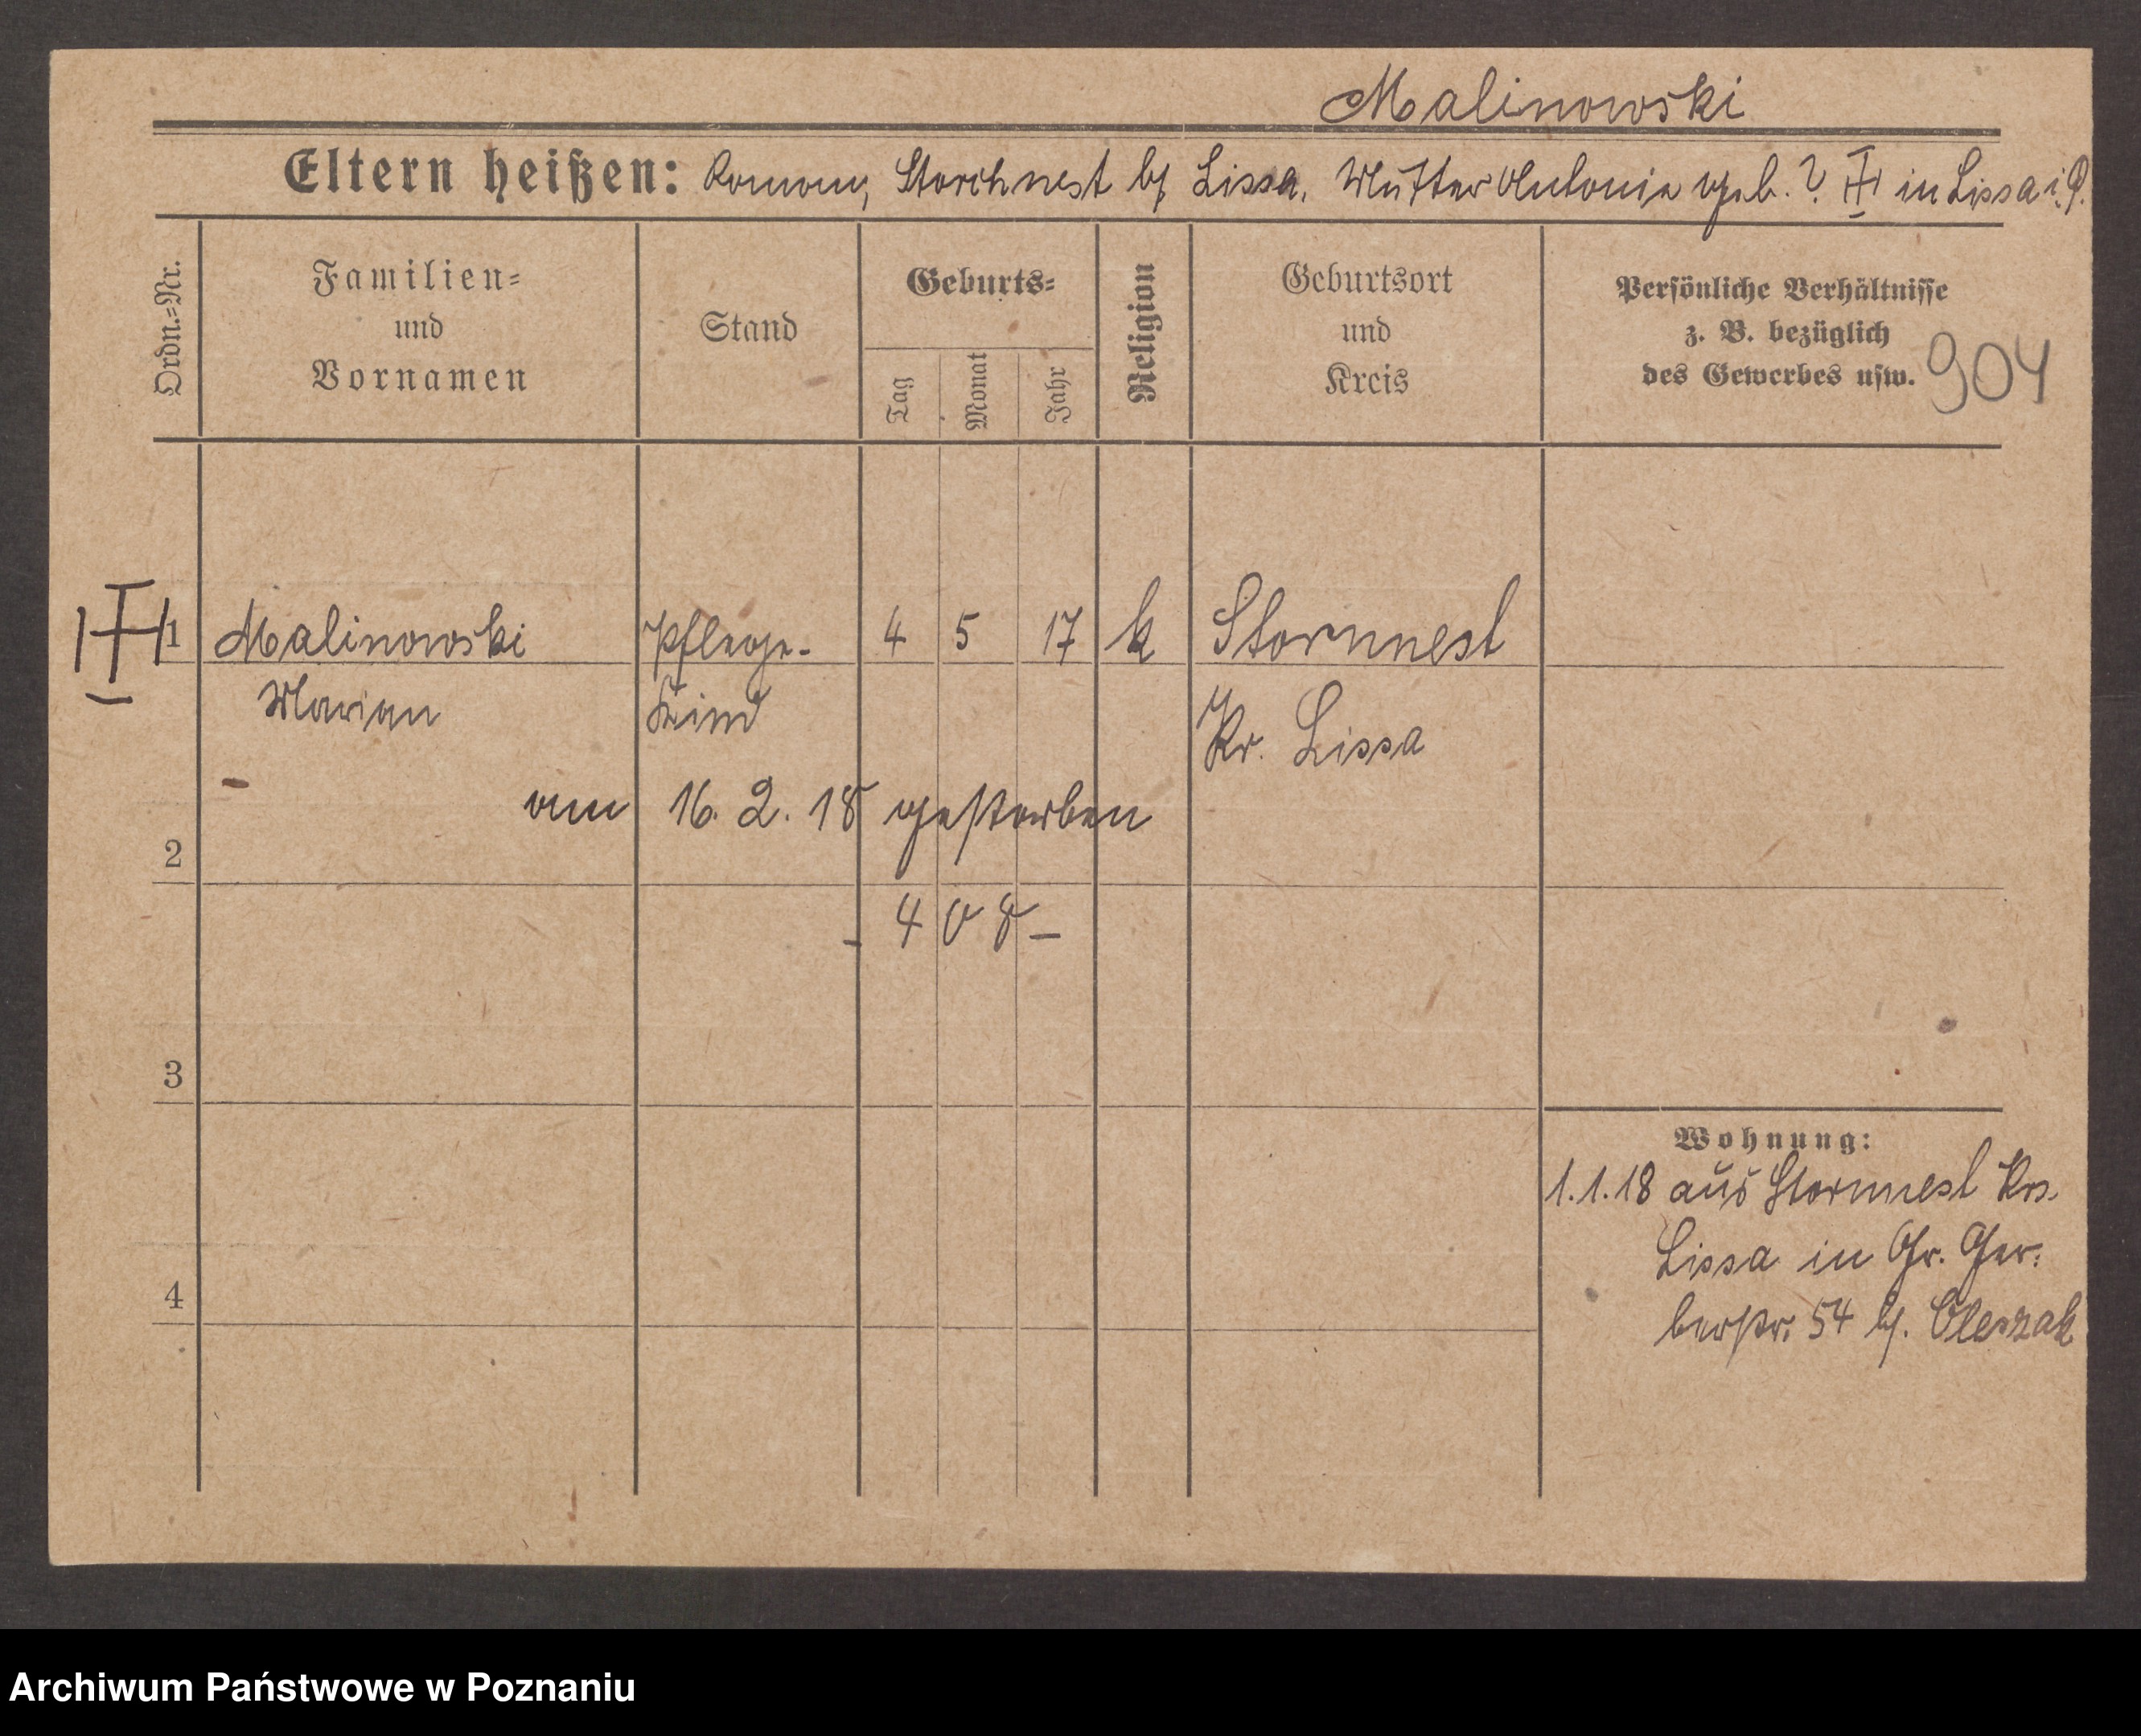 Malinowski
Eltern heißen: Roman, Storchnest bei Lissa. Mutter Antonie geb. ? in Lissa i. P.
Ordn.=Nr.
Familien=
und
Vornamen
Stand
Geburts=
Tag
Monat
Jahr
Religion
Geburtsort
und
Kreis
Persönliche Verhältnisse
z. B. bezüglich
des Gewerbes usw.
904
1 Malinowski Pflege- 4 5 17 k Stornnest
Marian Kind Kr. Lissa
am 16. 2. 18 gestorben
2
- 408 -
3
Wohnung:
1.1.18 aus Stornnest Krs.
Lissa in Gr. Ger=
4
berstr. 54 b. Oleszak
Archiwum Państwowe w Poznaniu